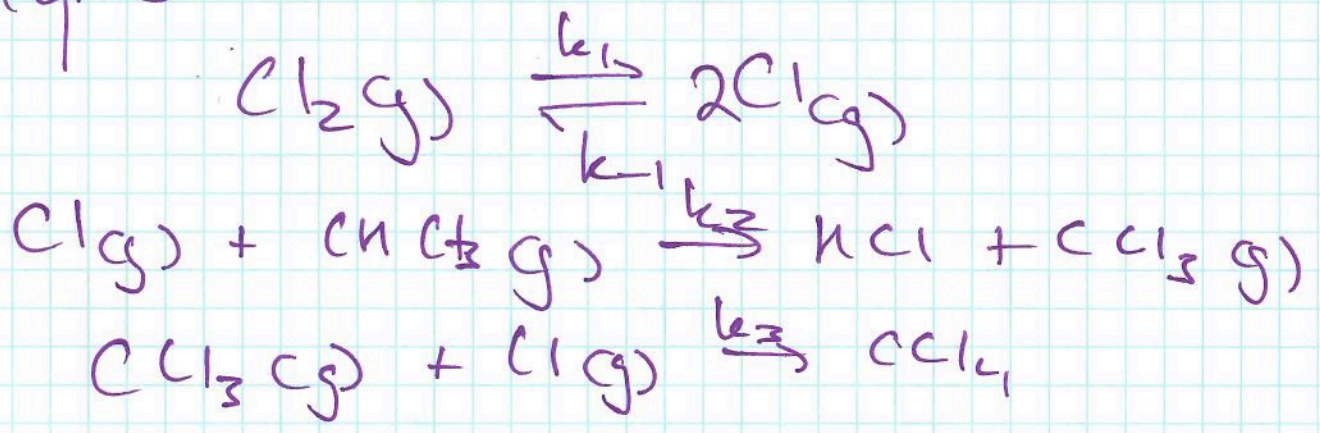 Cl₂(g) ⇌ 2Cl(g) k₁ k₋₁
Cl(g) + CHCl₃(g) →k₂ HCl + CCl₃(g)
CCl₃(g) + Cl(g) →k₃ CCl₄